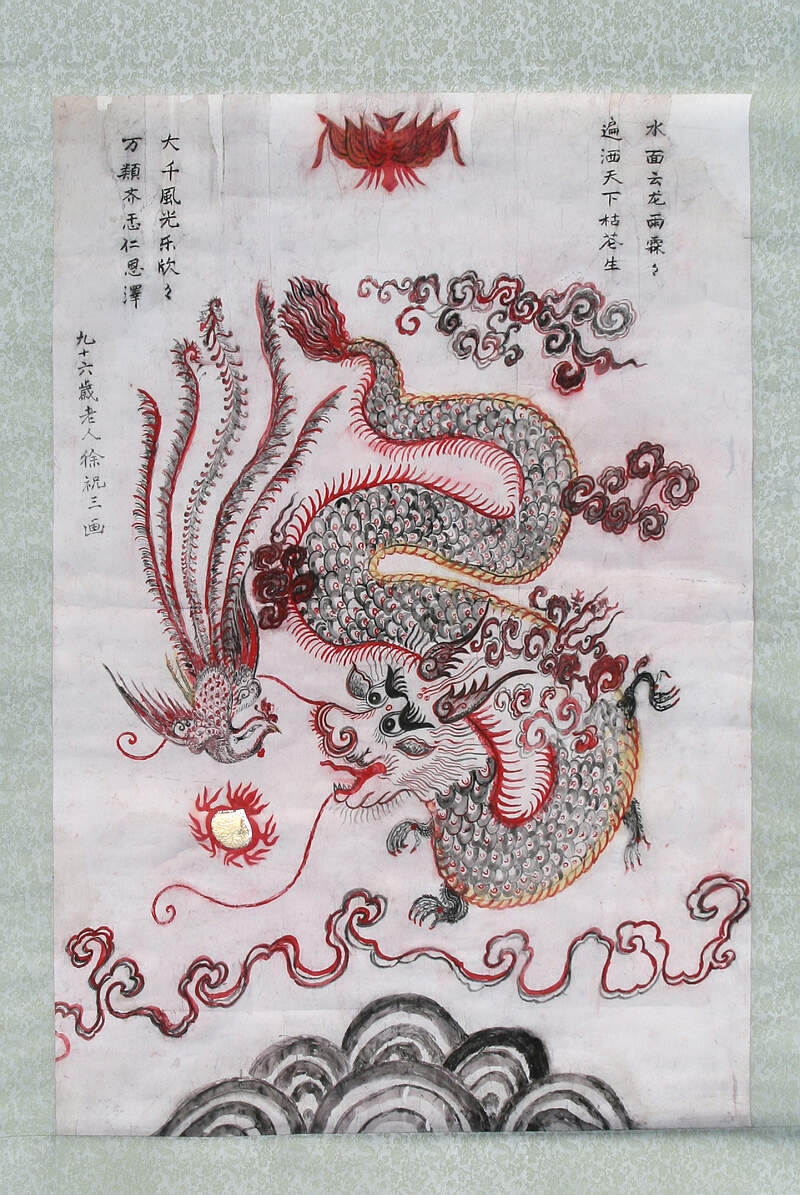 水面云龙雨霖々
遍洒天下枯花生
大千風光乐欣々
万類齐仁恩澤
九十六歲老人徐祝三画